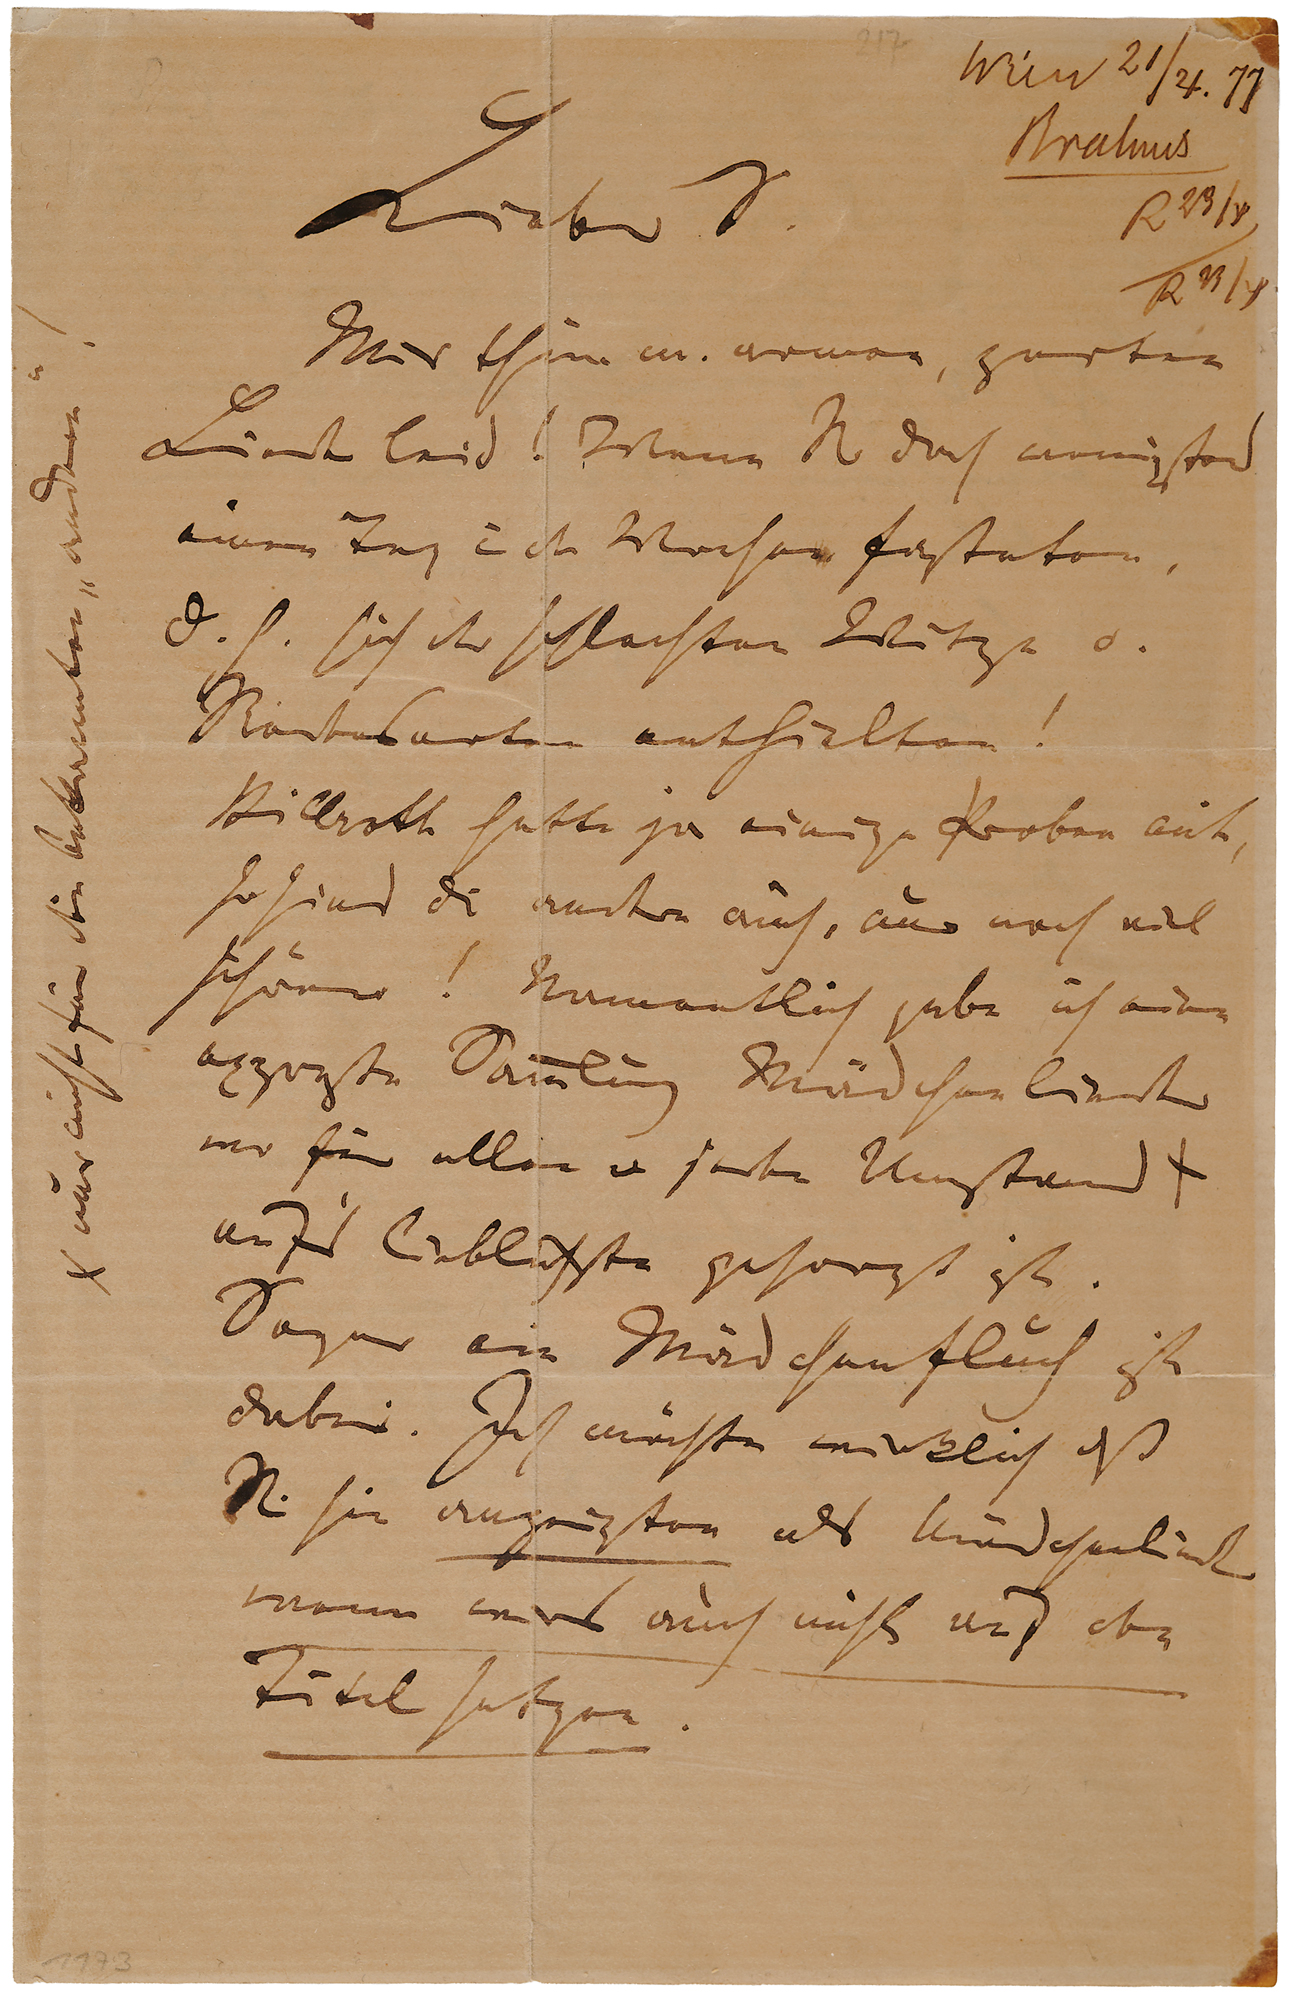 217
Wien 21/4. 77
Brahms
R 23/4
R 23/4
Lieber S.
Mir thun m. armen, zarten
Lieder leid! Wenn Sie doch wenigstens
einen Tag i. der Wochen fasteten,
d. h. sich der schlechten Witze o.
Redensarten enthielten!
Billroth hatte ja einige Proben mit,
so sind die andern auch, nur noch viel
schöner! Namentlich habe ich eine
Sammlung Mädchenlieder
wo für allen u jeden Umstand X
auf's lieblichste gesorgt ist.
Sogar ein Mädchenfluch ist
dabei. Ich möchte wirklich daß
Sie sie anzeigten als Mädchenlieder
wenn wirs auch nicht auf den
Titel setzen.
X nur nicht für den bekannten „andern“!
1173